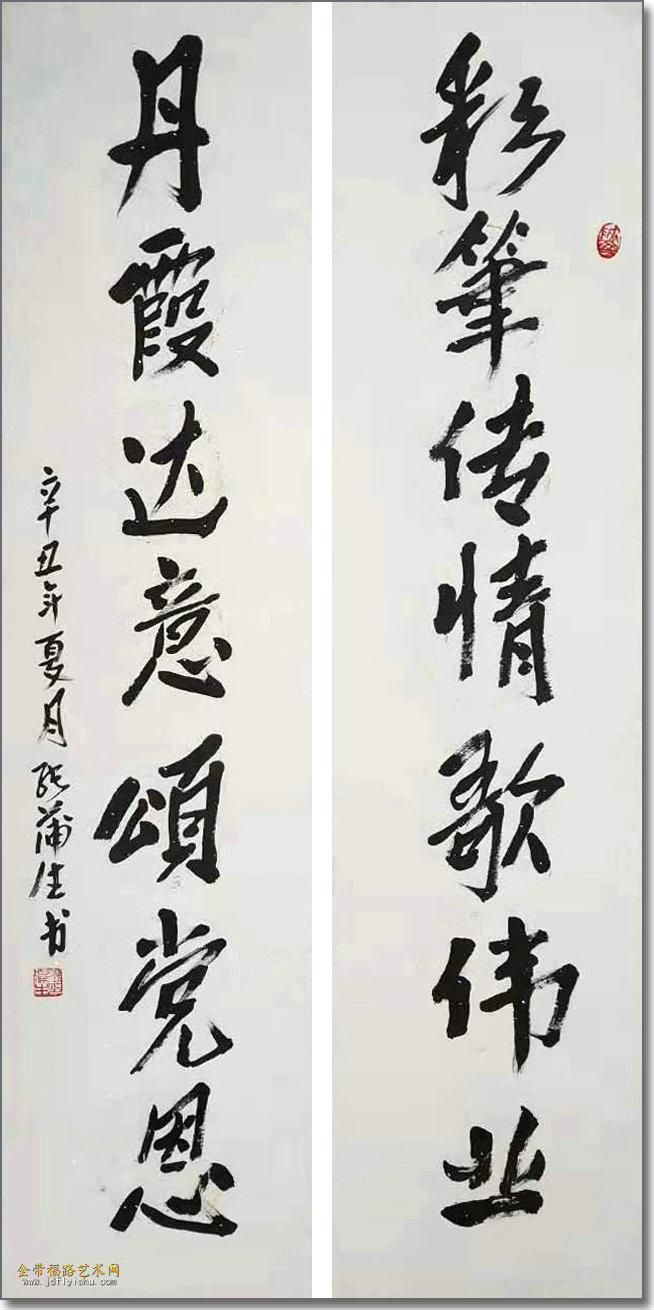 彩筆传情歌伟业
丹霞达意頌党恩
辛丑年夏月张蒲生书
金带福路艺术网
www.jdflyishu.com